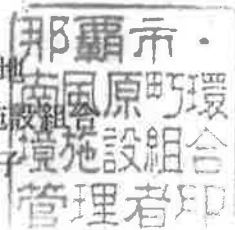 那覇市・
南風原町環
境施設組合
管理者印
設組合